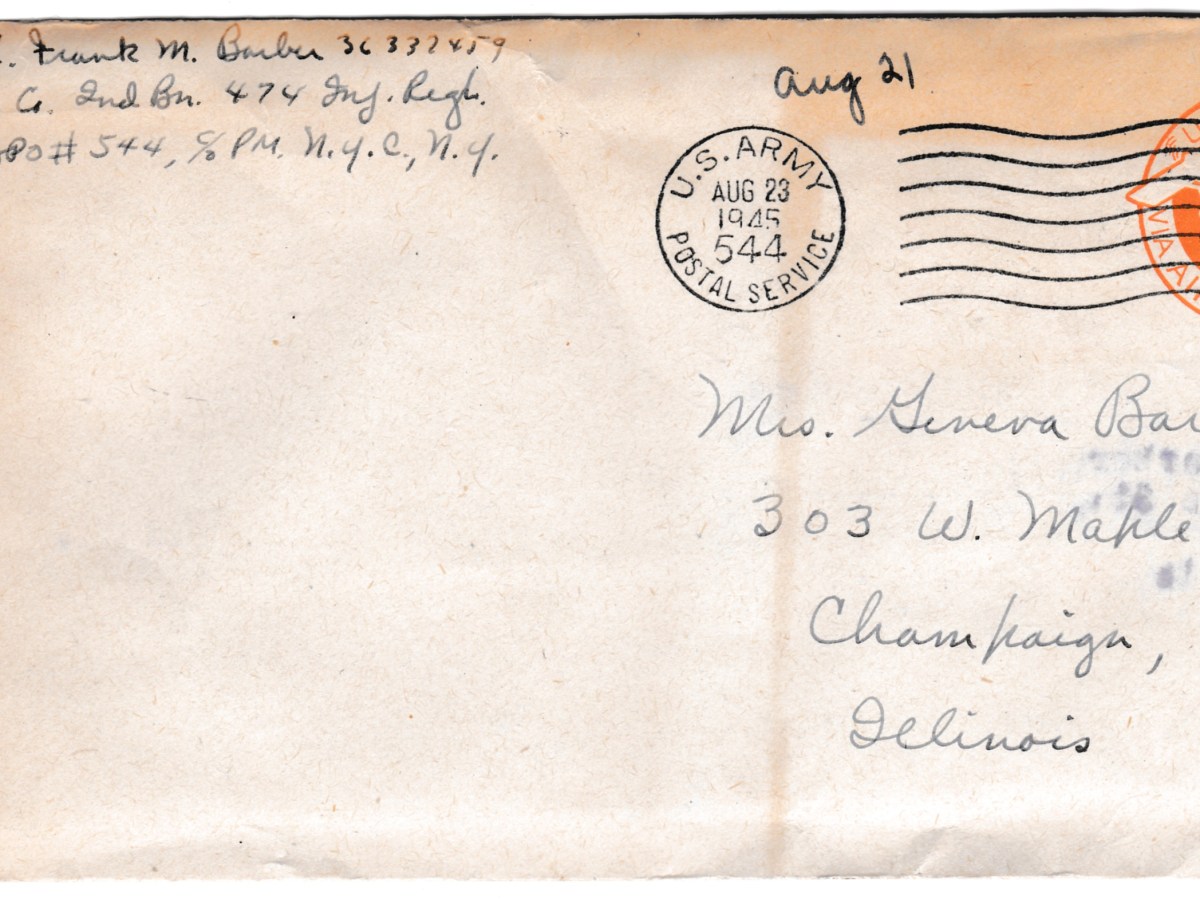 . Frank M. Barber 36 337459
Co. 2nd Bn. 474 Inf. Regt.
APO # 544, c/o PM. N.Y.C., N.Y.
Aug 21
U.S. ARMY
AUG 23
1945
544
POSTAL SERVICE
VIA AI
Mrs. Geneva Bar
303 W. Maple
Champaign,
Illinois